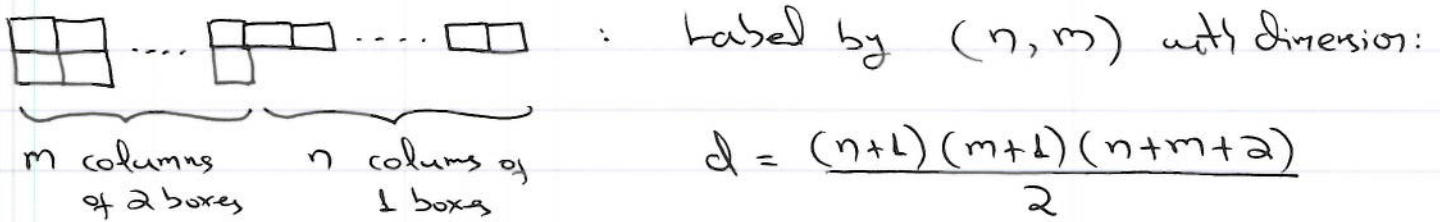 : Label by (n, m) with dimension:
m columns
of 2 boxes
n colums of
1 boxes
d = (n+1)(m+1)(n+m+2)
2